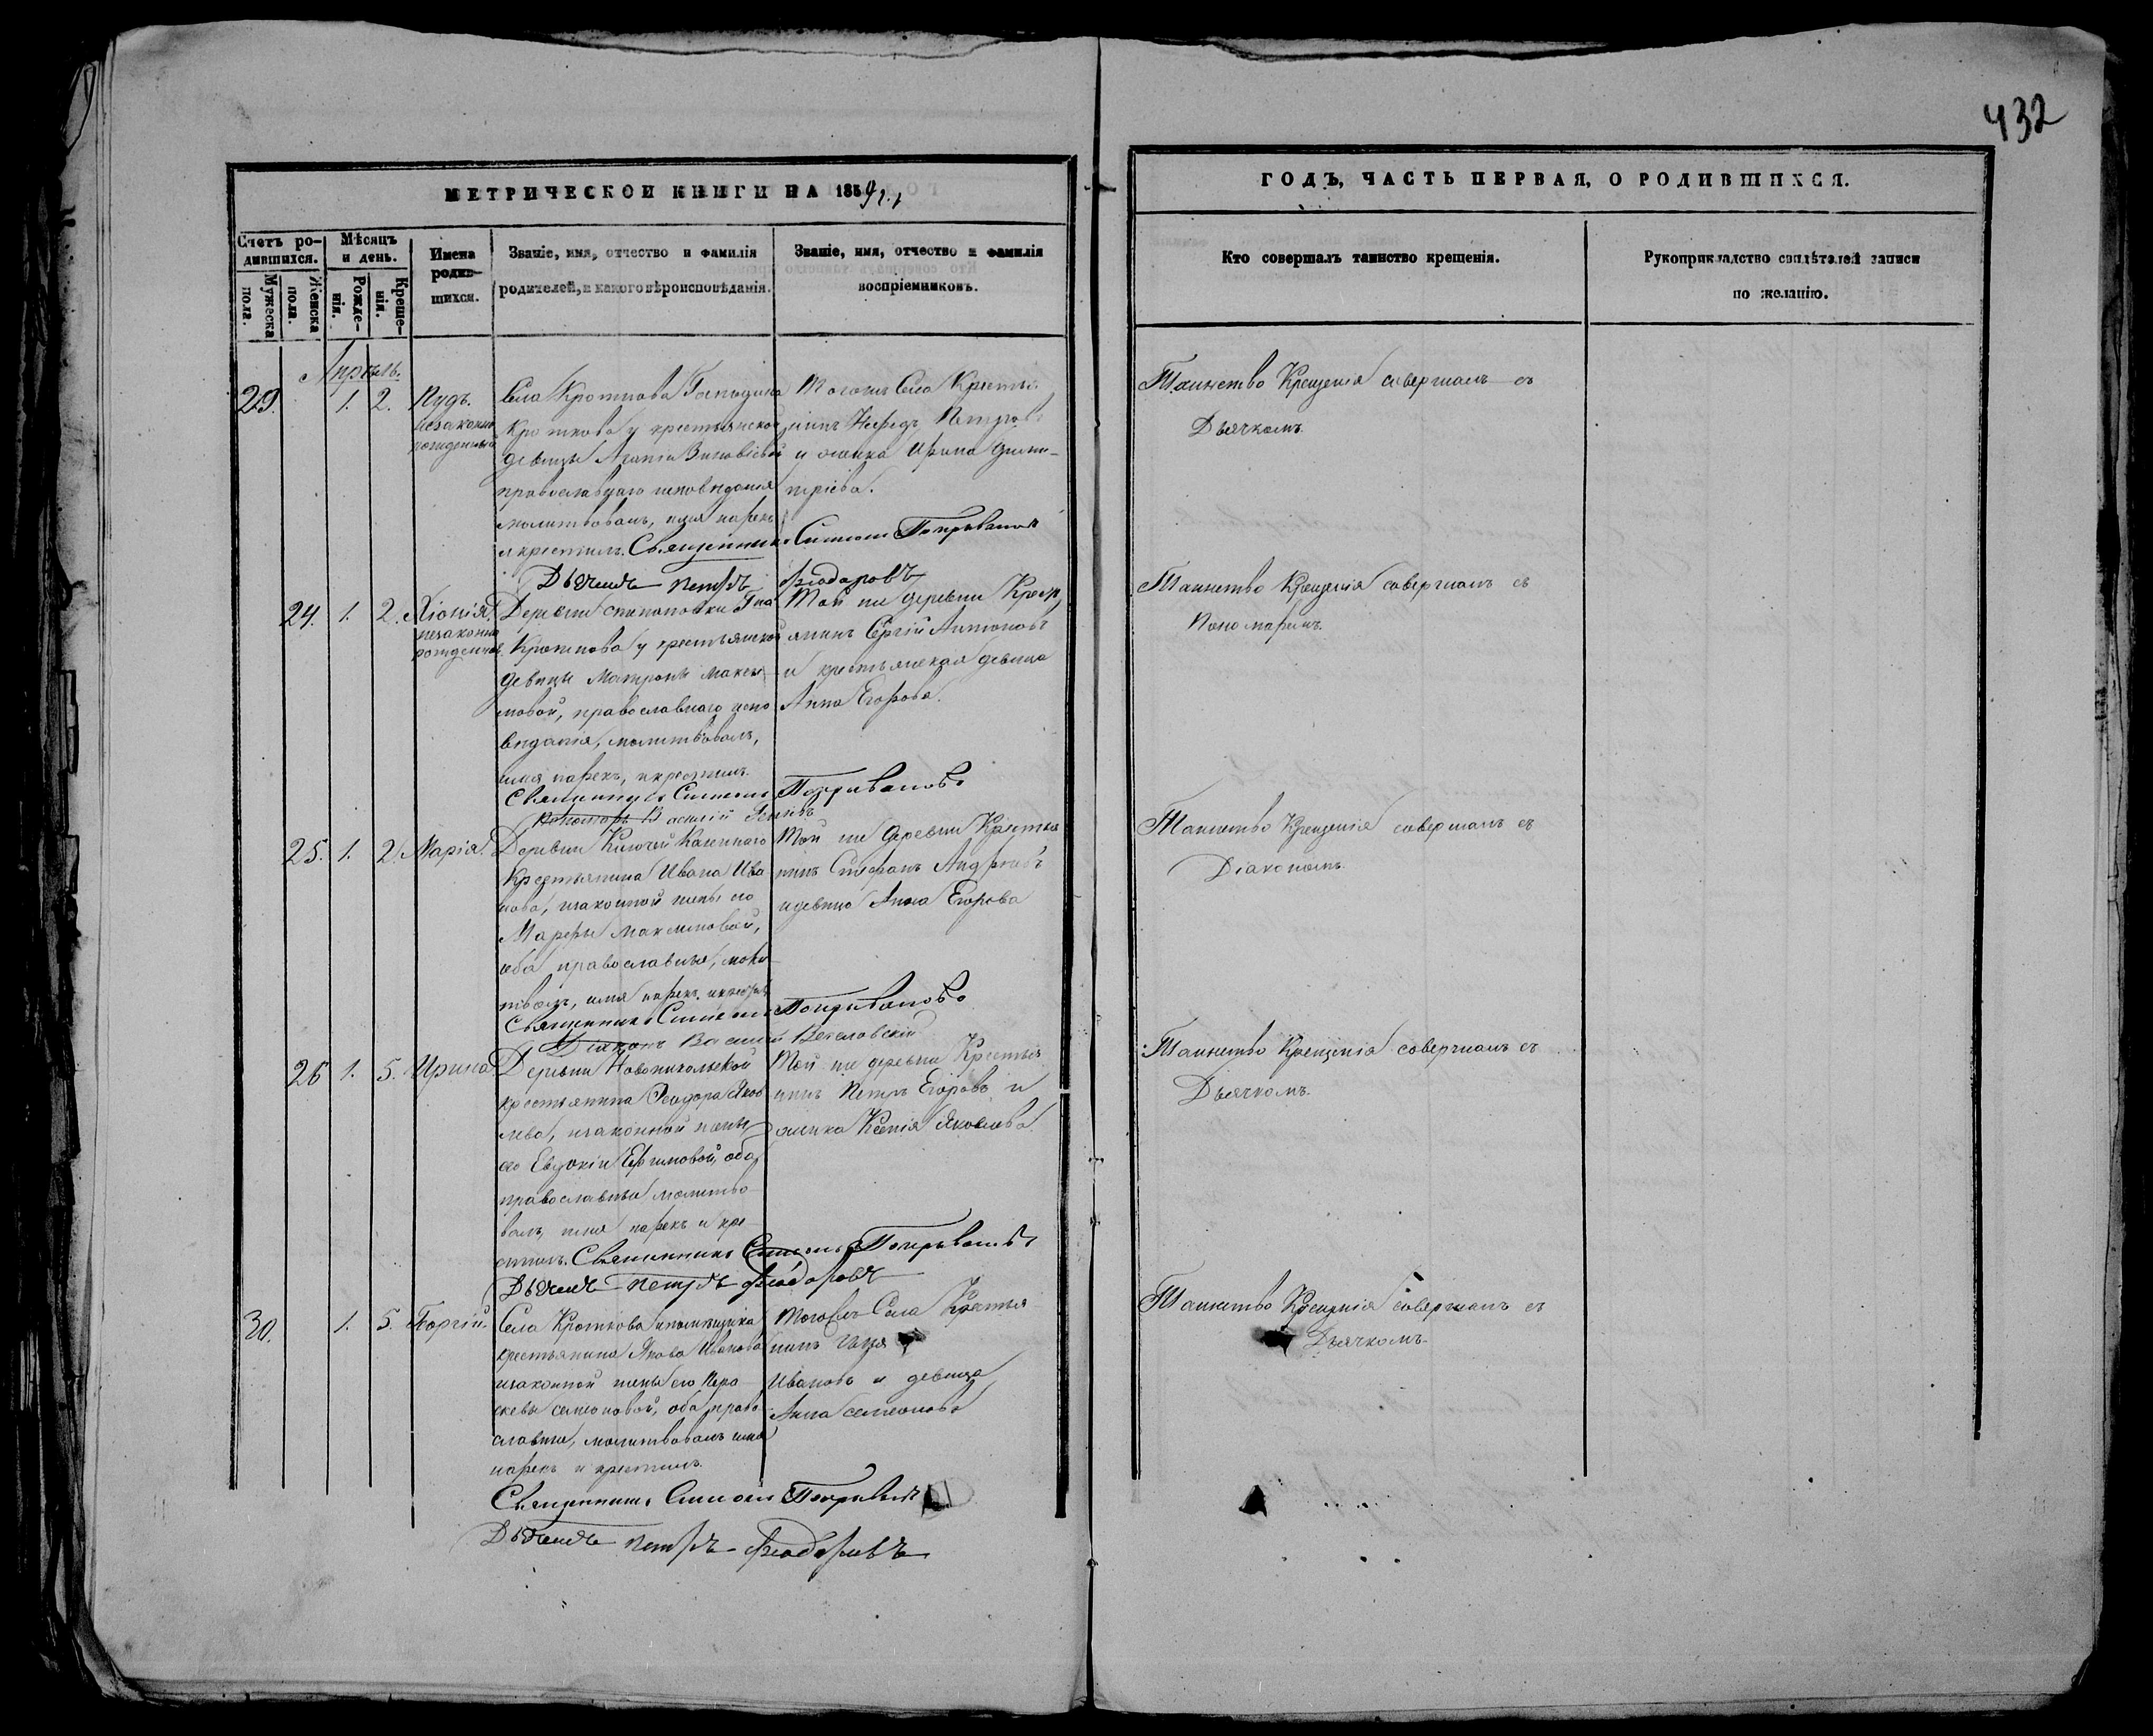 432
МЕТРИЧЕСКОЙ КНИГИ НА 1859 г.
ГОДЪ, ЧАСТЬ ПЕРВАЯ, О РОДИВШИХСЯ.
Счетъ ро-
дившихся.
Мужеска
пола.
Женска
пола.
Мѣсяцъ
и день.
Рожде-
нія.
Креще-
нія.
Имена
родив-
шихся.
Званіе, имя, отчество и фамилія
родителей, и какого вѣроисповѣданія.
Званіе, имя, отчество и фамилія
воспріемниковъ.
Кто совершалъ таинство крещенія.
Рукоприкладство свидѣтелей записи
по желанію.
Апрѣль.
29. 1. 2. Пудъ.
незаконно
рожденный
Села Кроткова Господина
Кроткова у крестьянской
девицы Агапіи Зиновіевой
православнаго исповѣданія
молитвовалъ, имя нарекъ
и крестилъ. Священникъ Симеонъ
Дьячекъ Петръ Ѳеодоровъ
Тогожъ Села Крестья
нинъ Нефедъ Петровъ
и женка Ирина Дими-
тріева.
Таинство Крещенія совершалъ съ
Дьячкомъ.
24. 1. 2. Хіонія.
незаконно
рожденная.
Деревни Гна
Кроткова у крестьянской
девицы Матроны Макси
мовой, православнаго испо
вѣданія, молитвовалъ,
имя нарекъ, и крестилъ.
Священникъ Симеонъ
Пономарь Василій
Той же деревни Крест
янинъ Сергій Антоновъ
и крестьянская девица
Анна Егорова.
Таинство Крещенія совершалъ съ
Пономаремъ.
25. 1. 2. Марія.
Деревни Ключей Казеннаго
Крестьянина Ивана Ива
нова, и законной жены его
Марфы Максимовой,
оба православные, моли
твовалъ, имя нарекъ, и крестилъ
Священникъ Симеонъ
Діаконъ Василій Веселовскій
Той же деревни Крестья
нинъ Стефанъ Андреевъ
и девица Анна Егорова
Таинство Крещенія совершалъ съ
Діакономъ.
26 1. 5. Ирина
Деревни Новоникольской
крестьянина Ѳеодора Яков
лева, и законной жены
его Евдокіи Ефимовой, оба
православные молитво
валъ, имя нарекъ и кре
стилъ. Священникъ Симеонъ
Дьячекъ Петръ Ѳеодоровъ
Той же деревни Крестья
нинъ Петръ Егоровъ и
женка Ксенія Яковлева
Таинство Крещенія совершалъ съ
Дьячкомъ.
30. 1. 5. Георгій.
Села Кроткова помещика
крестьянина Якова Иванова
и законной жены его Пара
скевы Семеновой, оба право
славные, молитвовалъ имя
нарекъ и крестилъ.
Священникъ Симеонъ
Дьячекъ Петръ Ѳеодоровъ
Тогожъ Села Крестья
нинъ
Ивановъ и девица
Анна Семеонова
Таинство Крещенія совершалъ съ
Дьячкомъ.